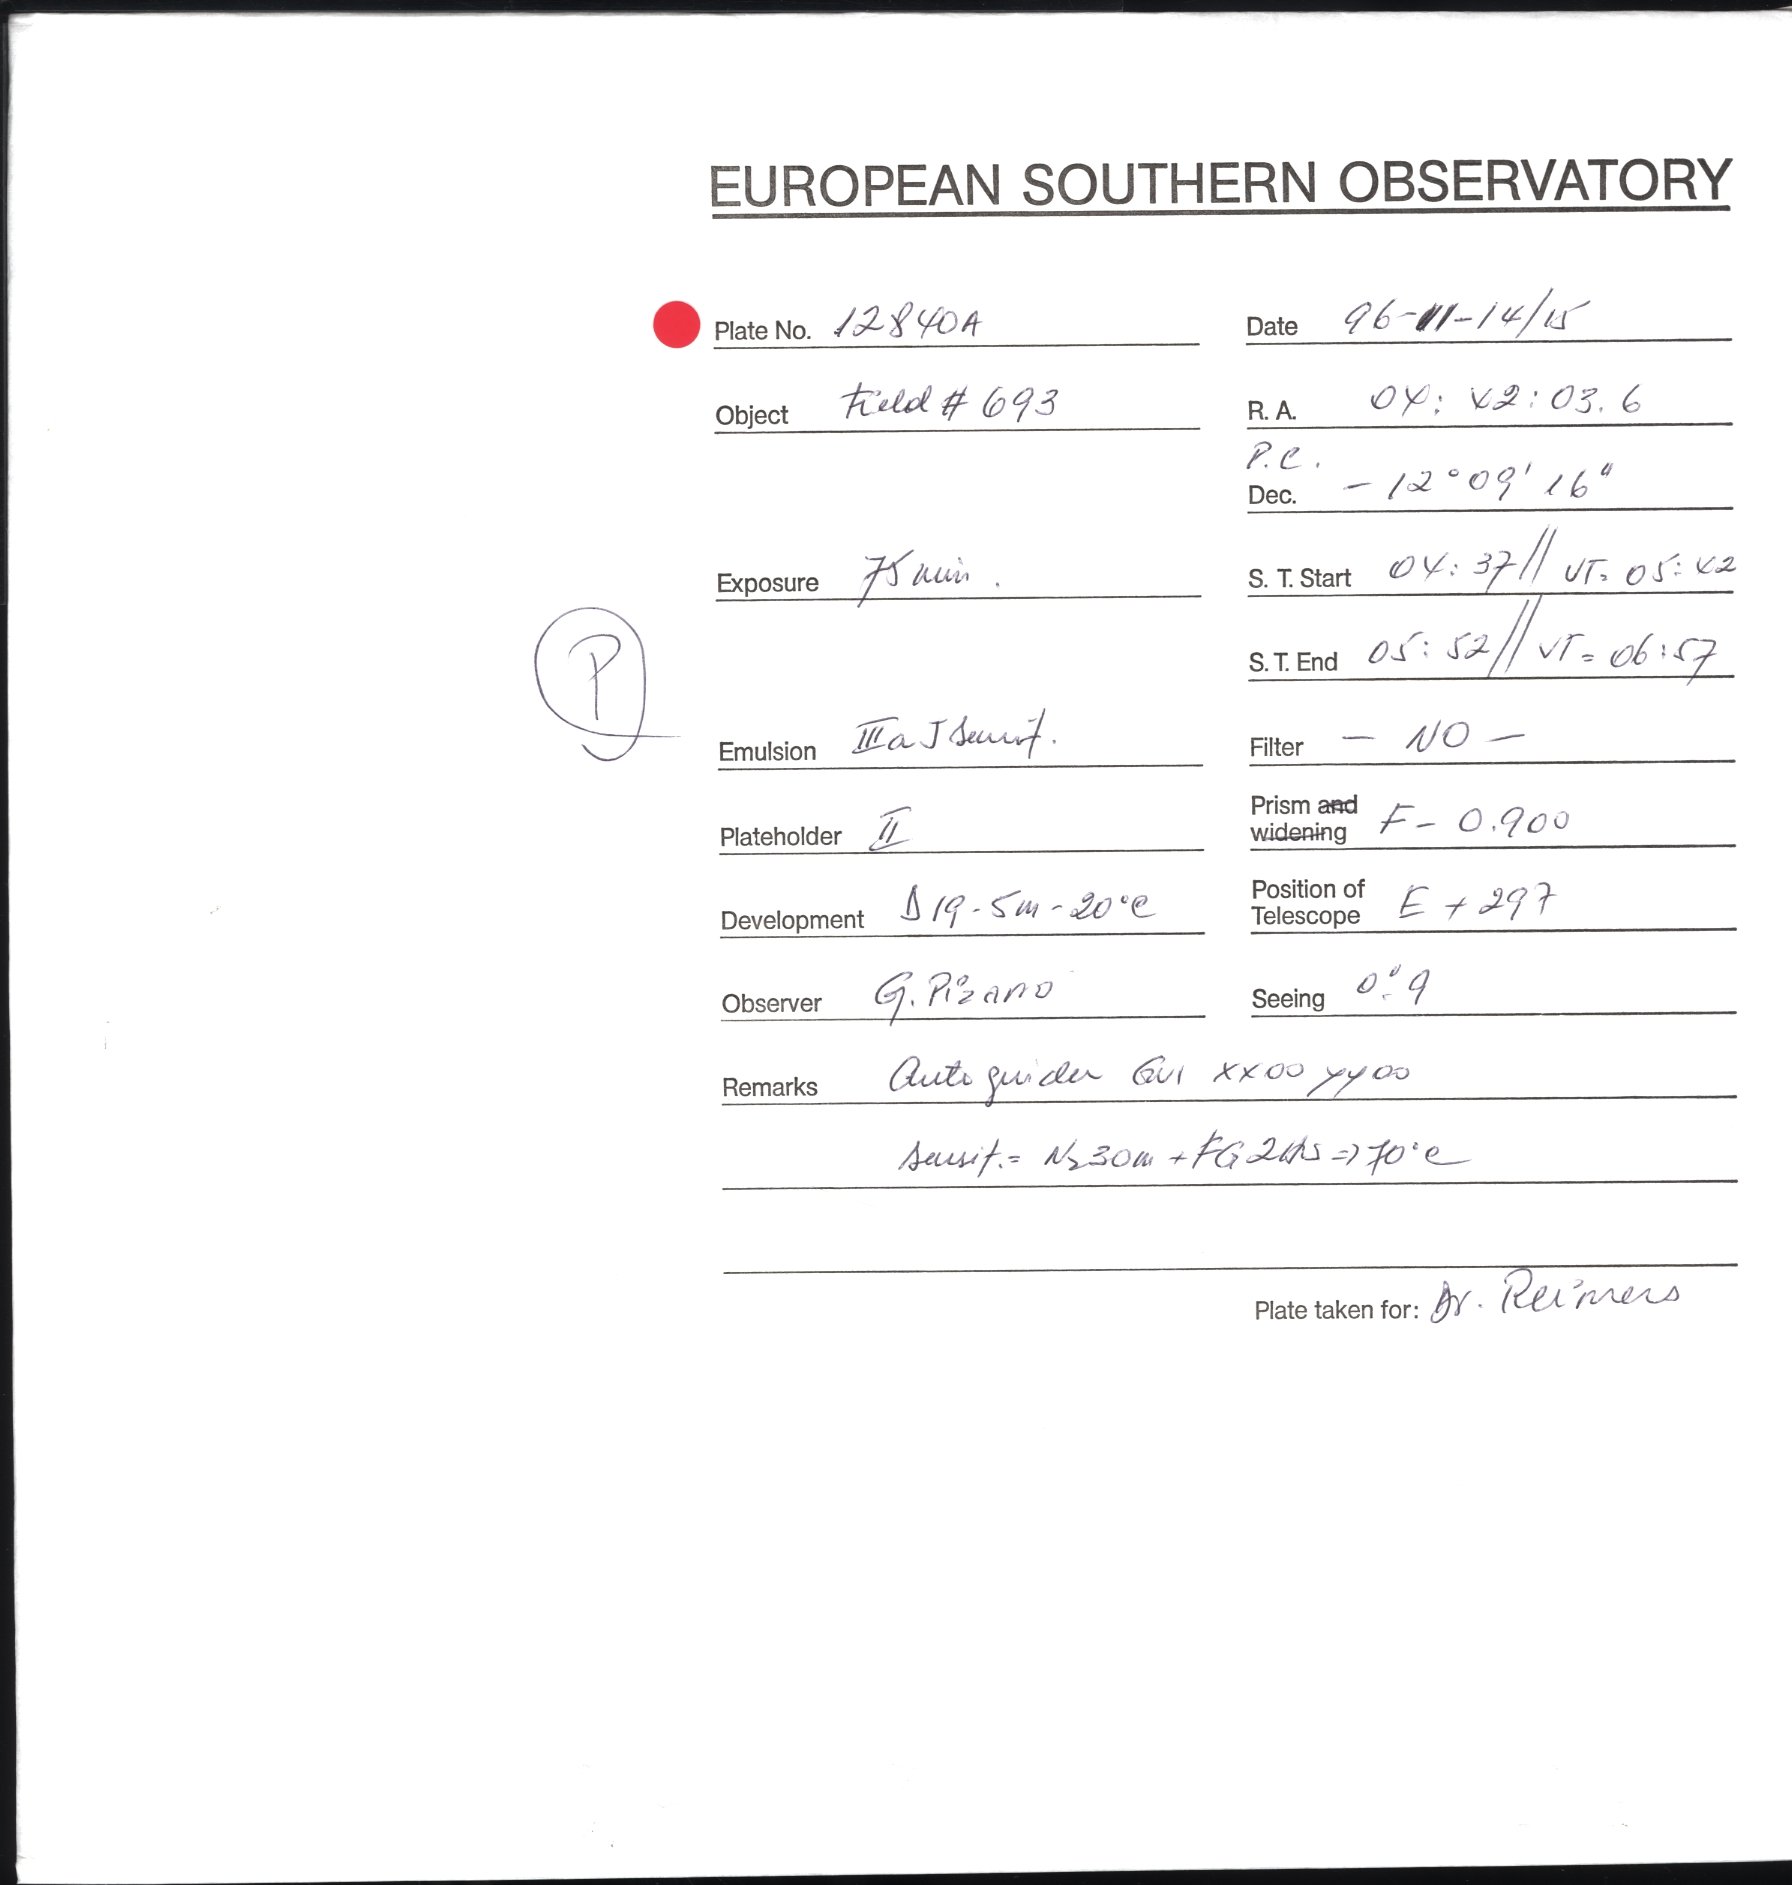 EUROPEAN SOUTHERN OBSERVATORY
Plate No. 12840A
Date 96-11-14/15
Object Field # 693
R. A. 04: 42: 03.6
P.C.
Dec. - 12° 09' 16"
Exposure 75 min.
S. T. Start 04: 37 // UT= 05: 42
S. T. End 05: 52 // UT= 06:57
P
Emulsion IIIa J sensit.
Filter - NO -
Plateholder II
Prism and widening F- 0.900
Development D19 - 5m - 20°C
Position of Telescope E + 297
Observer G. Pizarro
Seeing 0".9
Remarks Autoguider xx00 yy00
sensit.= N2 30m + FG 2hs => 70°C
Plate taken for: Dr. Reimers